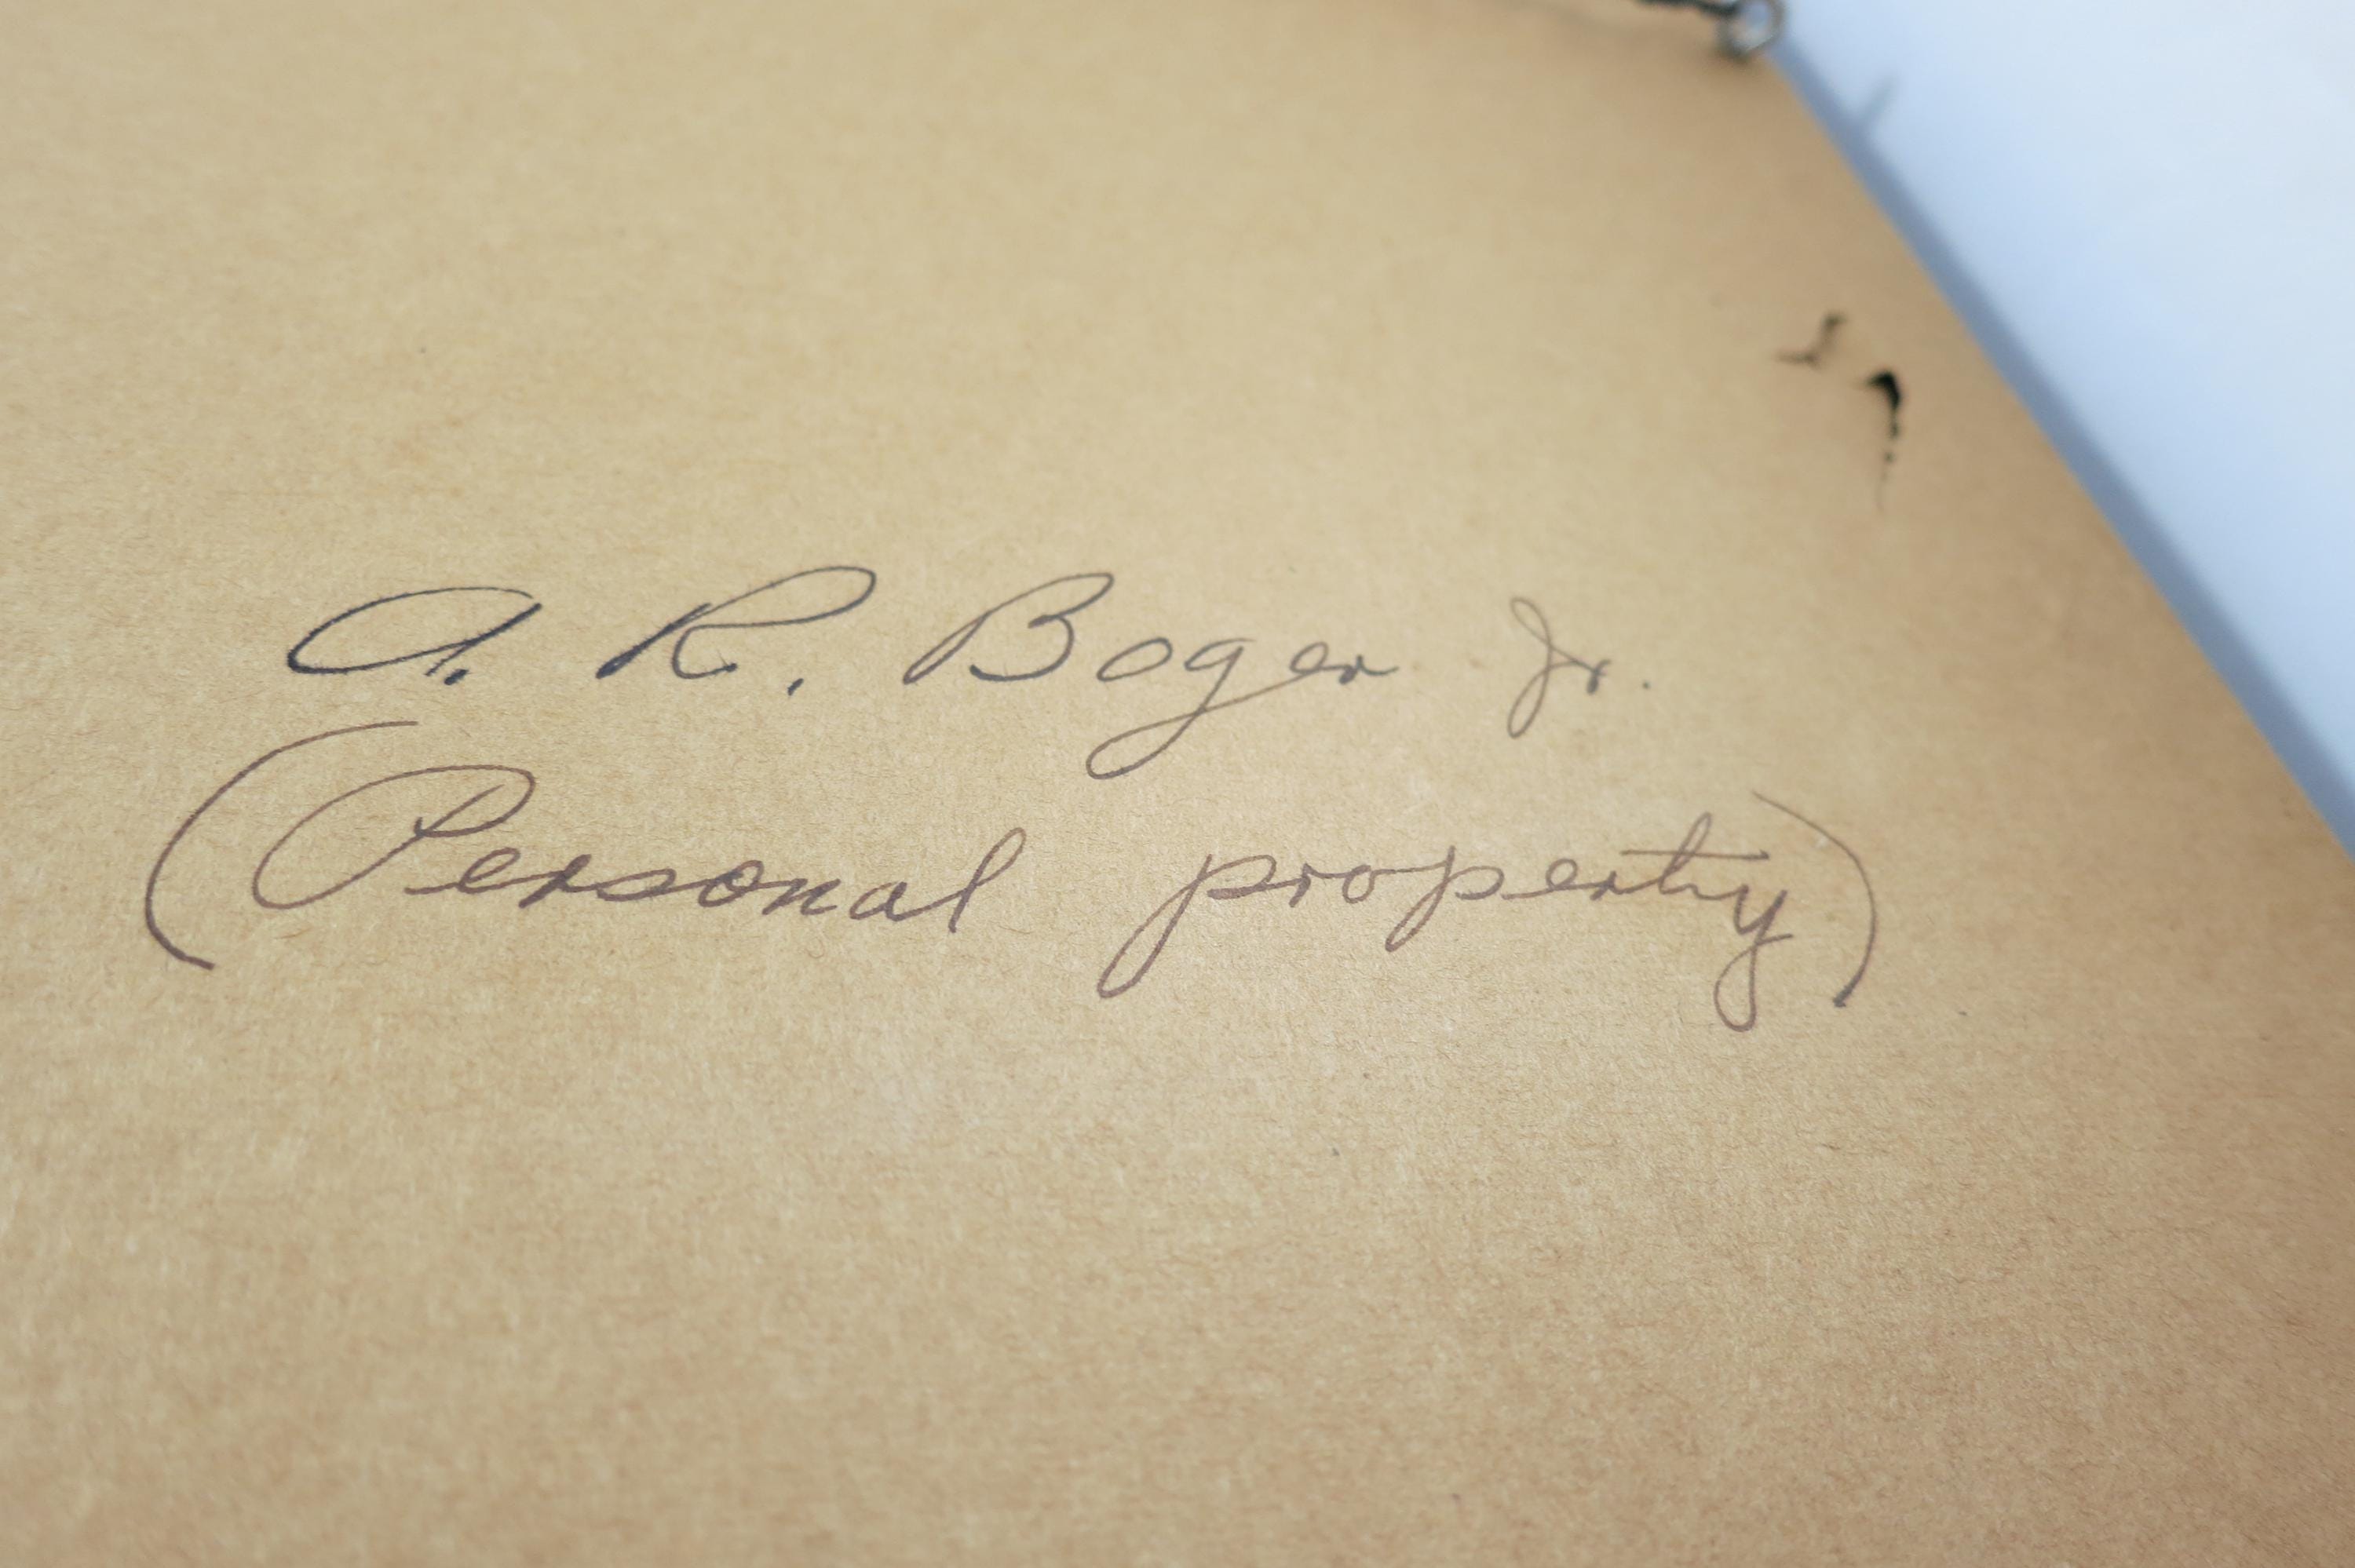 A. R. Boger Jr.
(Personal property)